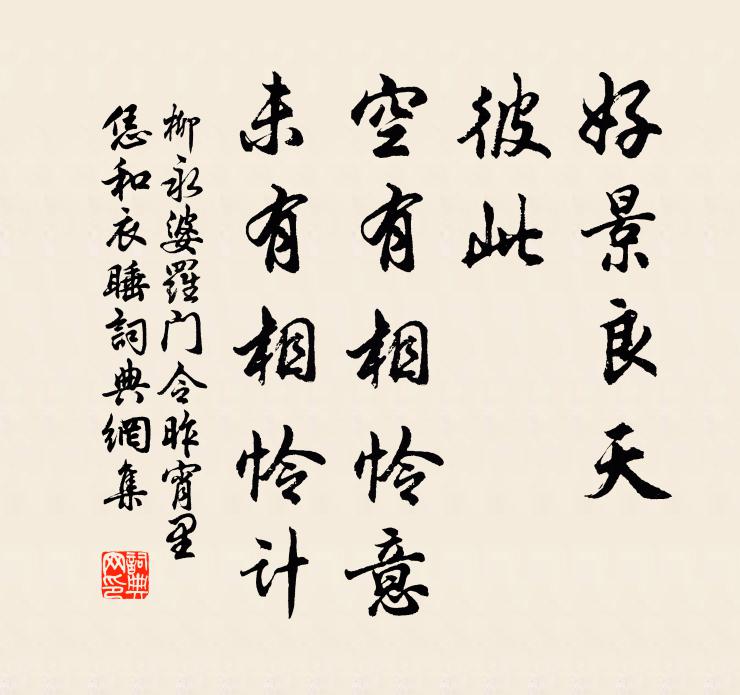 好景良天
彼此
空有相怜意
未有相怜计
柳永婆羅门令昨宵里
恁和衣睡詞典網集
詞典
网印